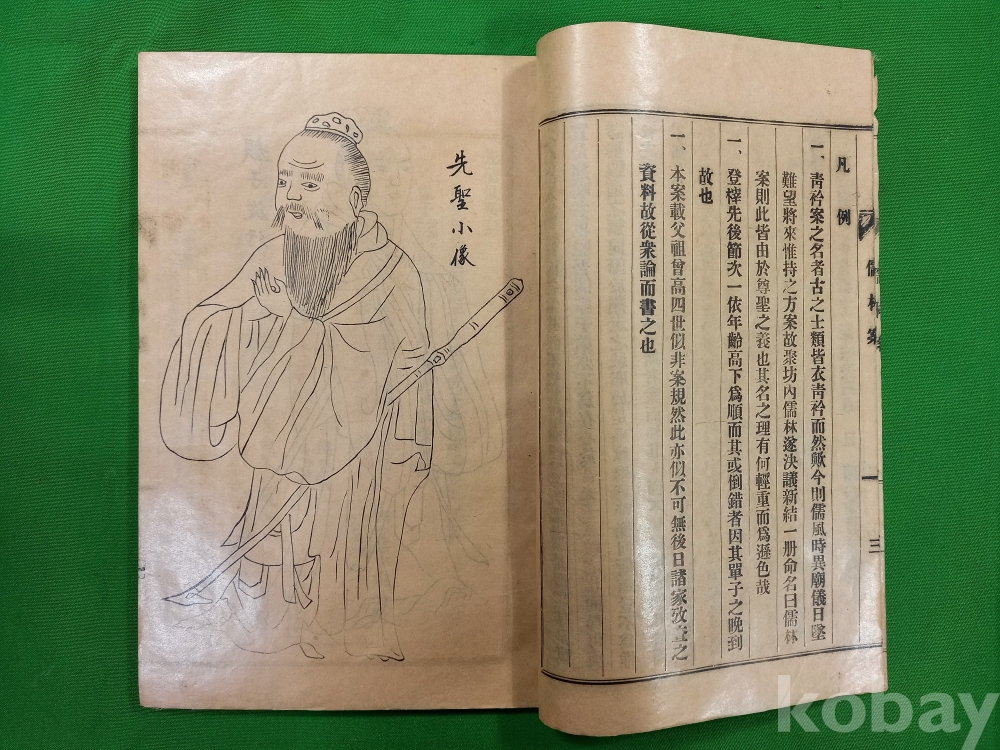 凡例
一、靑衿案之名者古之士類皆衣靑衿而然歟今則儒風時異廟儀日墜
難望將來惟持之方案故聚坊內儒林遂決議新結一册命名曰儒林
案則此皆由於尊聖之義也其名之理有何輕重而爲遜色哉
一、登榟先後節次一依年齡高下爲順而其或倒錯者因其單子之晩到
故也
一、本案載父祖曾高四世似非案規然此亦似不可無後日諸家攷查之
資料故從衆論而書之也
儒林案
一
三
先聖小像
kobay